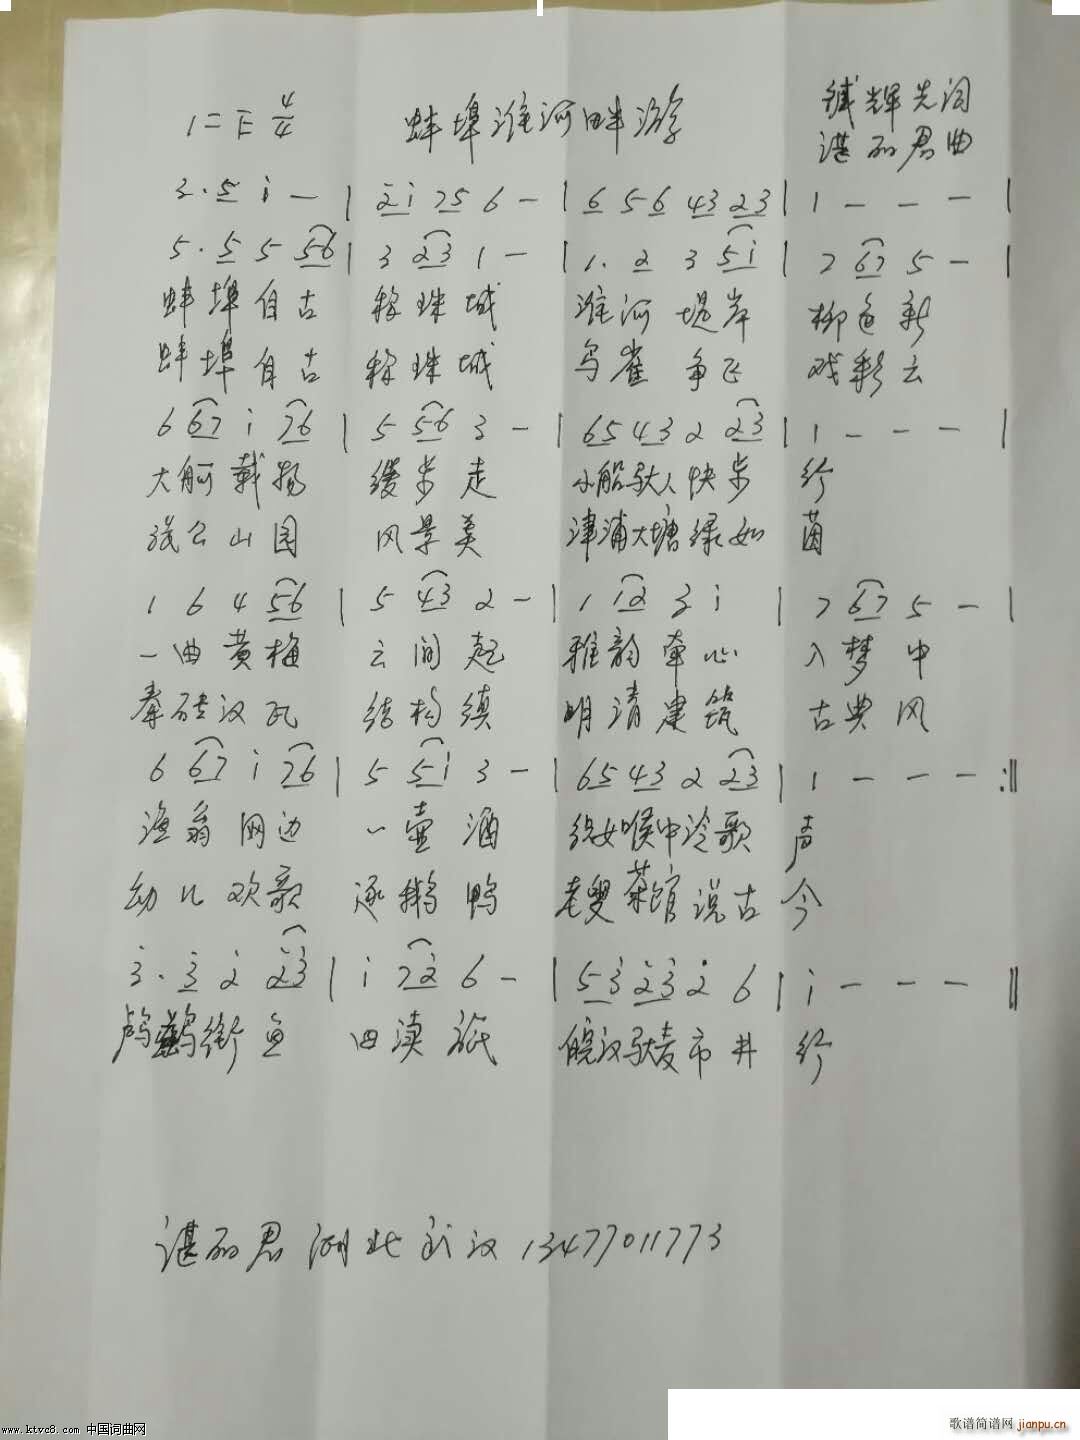 1=E 4/4 蚌埠淮河畔游 钺辉先词
谌丽君曲
3·5 i — | 2i 75 6 — | 6 5 6 43 23 | 1 — — — |
5·5 5 56 | 3 23 1 — | 1·2 3 5i | 7 67 5 — |
蚌埠自古 称珠城 淮河堤岸 柳色新
蚌埠自古 称珠城 鸟雀争飞 戏彩云
6 67 i 76 | 5 56 3 — | 65 43 2 23 | 1 — — — |
大舸载物 缓步走 小船驮人快步 行
张公山园 风景美 津浦大塘绿如 茵
1 6 4 56 | 5 43 2 — | 1 12 3 i | 7 67 5 — |
一曲黄梅 云间起 雅韵牵心 入梦中
秦砖汉瓦 结构镇 明清建筑 古典风
6 67 i 76 | 5 5i 3 — | 65 43 2 23 | 1 — — — :‖
渔翁网边 一壶酒 女喉中冷歌 声
幼儿欢歌 逐鹅鸭 老叟茶馆说古 今
3·3 2 23 | i 72 6 — | 53 23 2 6 | i — — — ‖
鸬鹚衔鱼 四渎 皖汉驮麦市井 行
谌丽君 湖北武汉 13477011773
www.ktvc8.com 中国词曲网
歌谱简谱网 jianpu.cn